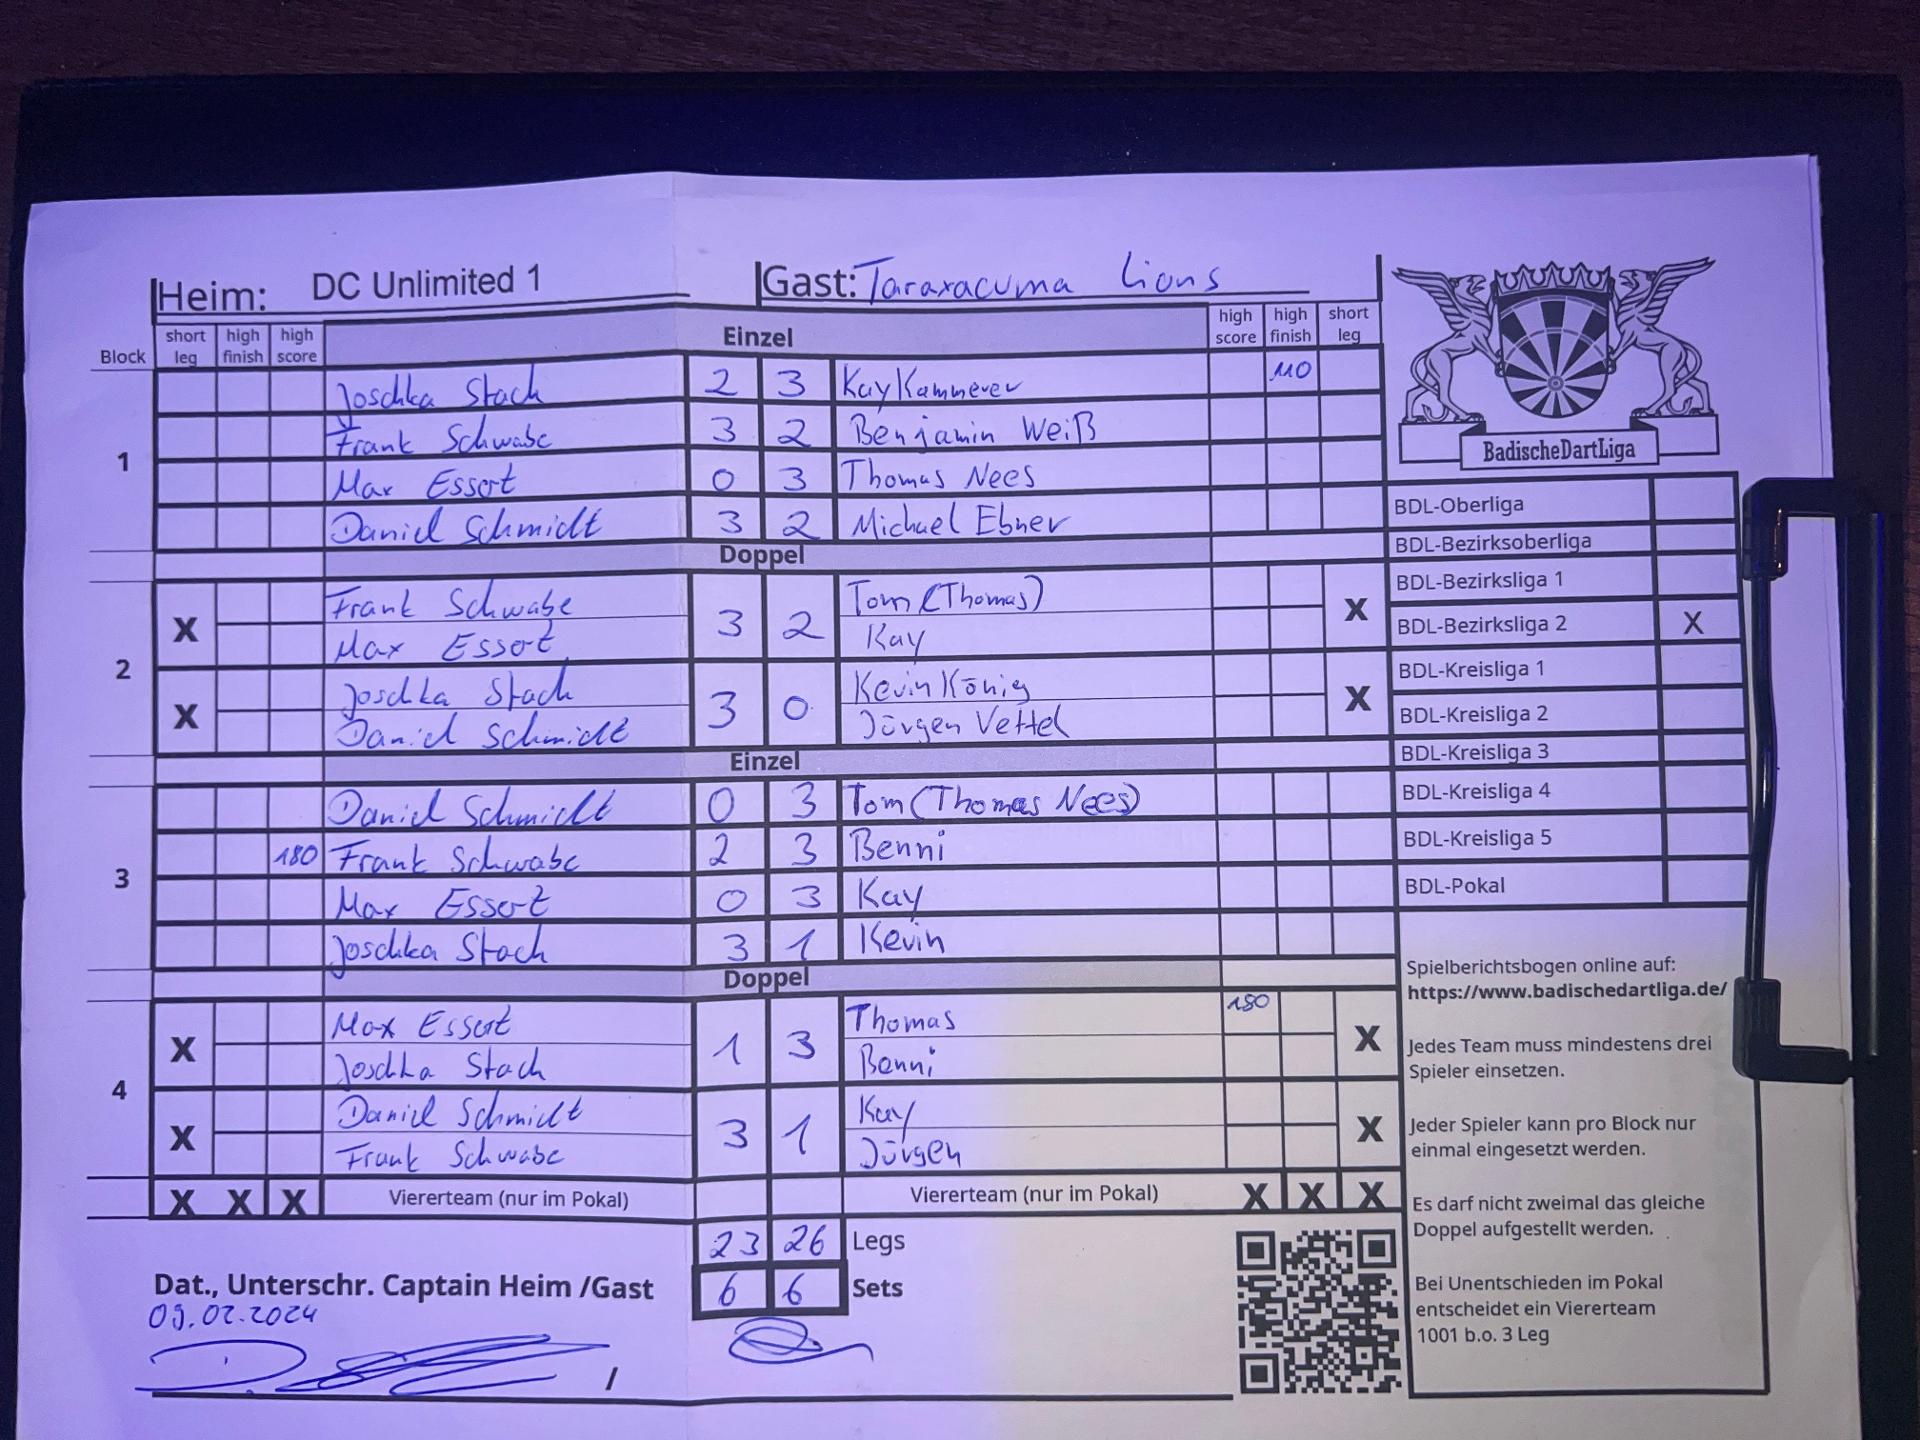 Heim: DC Unlimited 1 Gast: Taraxacuma Lions
Block short leg high finish high score Einzel high score high finish short leg
1
Joschka Stach 2 3 Kay Kammerer 110
Frank Schwabe 3 2 Benjamin Weiß
Max Essert 0 3 Thomas Nees
Daniel Schmidt 3 2 Michael Ebner
Doppel
2
X Frank Schwabe 3 2 Tom (Thomas) X
Max Essert Kay
X Joschka Stach 3 0 Kevin König X
Daniel Schmidt Jürgen Vettel
Einzel
3
Daniel Schmidt 0 3 Tom (Thomas Nees)
180 Frank Schwabe 2 3 Benni
Max Essert 0 3 Kay
Joschka Stach 3 1 Kevin
Doppel
4
X Max Essert 1 3 Thomas 180 X
Joschka Stach Benni
X Daniel Schmidt 3 1 Kay X
Frank Schwabe Jürgen
X X X Viererteam (nur im Pokal) Viererteam (nur im Pokal) X X X
23 26 Legs
6 6 Sets
Dat., Unterschr. Captain Heim /Gast
09.02.2024
/
BadischeDartLiga
BDL-Oberliga
BDL-Bezirksoberliga
BDL-Bezirksliga 1
BDL-Bezirksliga 2 X
BDL-Kreisliga 1
BDL-Kreisliga 2
BDL-Kreisliga 3
BDL-Kreisliga 4
BDL-Kreisliga 5
BDL-Pokal
Spielberichtsbogen online auf:
https://www.badischedartliga.de/
Jedes Team muss mindestens drei
Spieler einsetzen.
Jeder Spieler kann pro Block nur
einmal eingesetzt werden.
Es darf nicht zweimal das gleiche
Doppel aufgestellt werden.
Bei Unentschieden im Pokal
entscheidet ein Viererteam
1001 b.o. 3 Leg